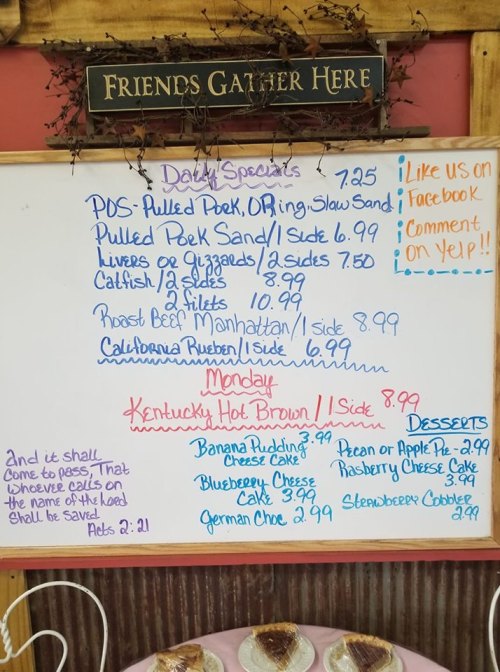 FRIENDS GATHER HERE
Daily Specials 7.25
POS-Pulled Pork, ORing, Slaw Sand
Pulled Pork Sand/1 Side 6.99
Livers or Gizzards/2 sides 7.50
Catfish/2 sides 8.99
2 filets 10.99
Roast Beef Manhattan/1 side 8.99
California Rueben/1 Side 6.99
Like us on
Facebook
Comment
on Yelp!!
Monday
Kentucky Hot Brown/1 Side 8.99
Desserts
Banana Pudding 3.99
Cheese Cake
Blueberry Cheese
Cake 3.99
German Choc 2.99
Pecan or Apple Pie-2.99
Rasberry Cheese Cake
3.99
Strawberry Cobbler
2.99
And it shall
Come to pass That
whoever calls on
the name of the Lord
Shall be saved
Acts 2:21